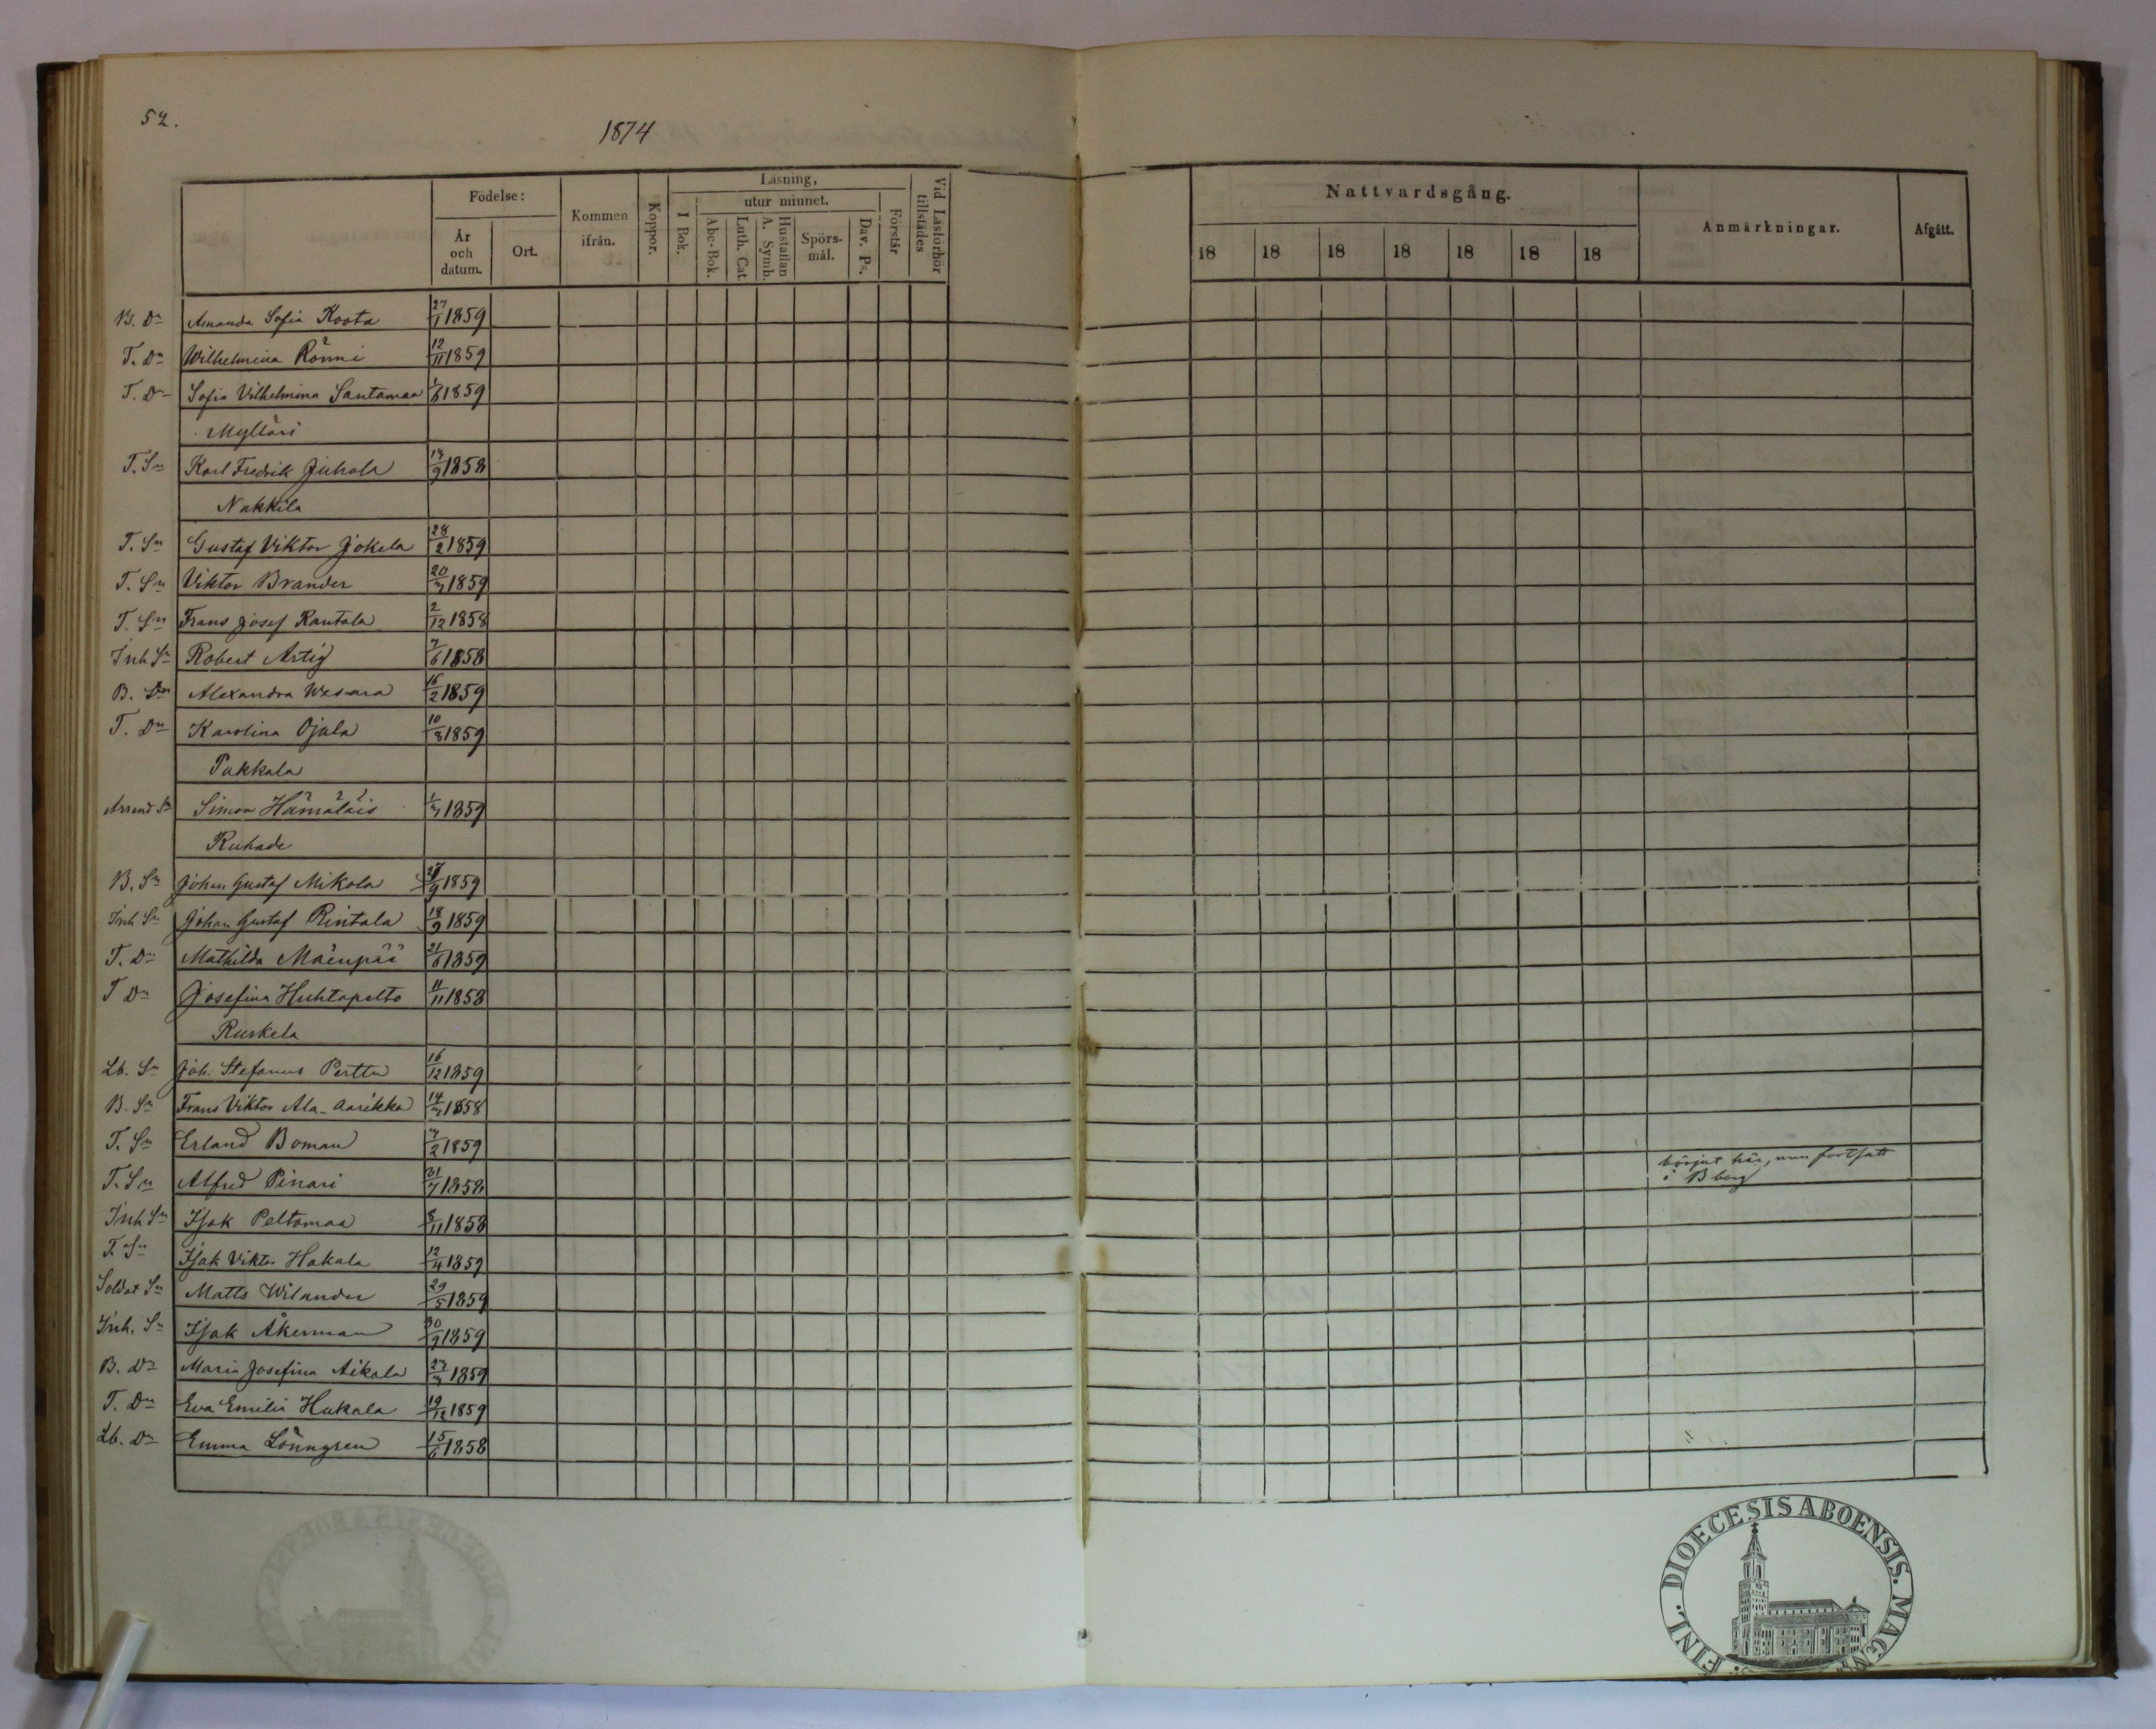 52.
1874
Födelse:
År och datum.
Ort.
Kommen ifrån.
Koppor.
Läsning,
utur minnet.
I Bok.
Abc-Bok.
Luth. Cat
Hustaflan A. Symb.
Spörs-mål.
Dav. Ps.
Förstår
Vid Läsförhör tillstädes
Nattvardsgång.
18 18 18 18 18 18 18
Anmärkningar.
Afgått.
B. Dr Amanda Sofia Koota 27/1 1859
T. Dr Wilhelmina Rönni 12/11 1859
T. Dr Sofia Vilhelmina Santamaa 1/6 1859
Mylläri
T. Sn Karl Fredrik Juhola 14/9 1858
Nakkila
T. Sn Gustaf Viktor Jokela 28/2 1859
T. Sn Viktor Brander 20/3 1859
T. Sn Frans Josef Rantala 2/12 1858
Inh Sn Robert Artig 7/6 1858
B. Dr Alexandra Wesara 16/2 1859
T. Dr Karolina Ojala 10/8 1859
Pukkala
Arrend Sn Simon Hämäläis 1/3 1859
Ruhade
B. Sn Johan Gustaf Mikola 27/9 1859
Inh Sn Johan Gustaf Rintala 18/9 1859
T. Dr Mathilda Mäenpää 21/6 1859
T Dr Josefina Huhtapelto 11/11 1858
Ruskela
Lb. Sn Joh. Stefanus Perttu 16/12 1859
B. Sn Frans Viktor Ala-Aarikka 14/3 1858
T. Sn Erland Boman 3/2 1859
T. Sn Alfred Pinari 31/7 1858 börjat här, men fortsatt
i Bborg
Inh Sn Isak Peltomaa 8/11 1858
T. Sn Isak Viktor Hakala 12/4 1859
Soldat Sn Matts Wilander 29/5 1859
Inh. Sn Isak Åkerman 30/9 1859
B. Dr Maria Josefina Aikala 23/3 1859
T. Dr Eva Emilia Hakala 19/12 1859
Lb. Dr Emma Lönngren 15/6 1858
FINL. DIOECESIS ABOENSIS. MAGN.